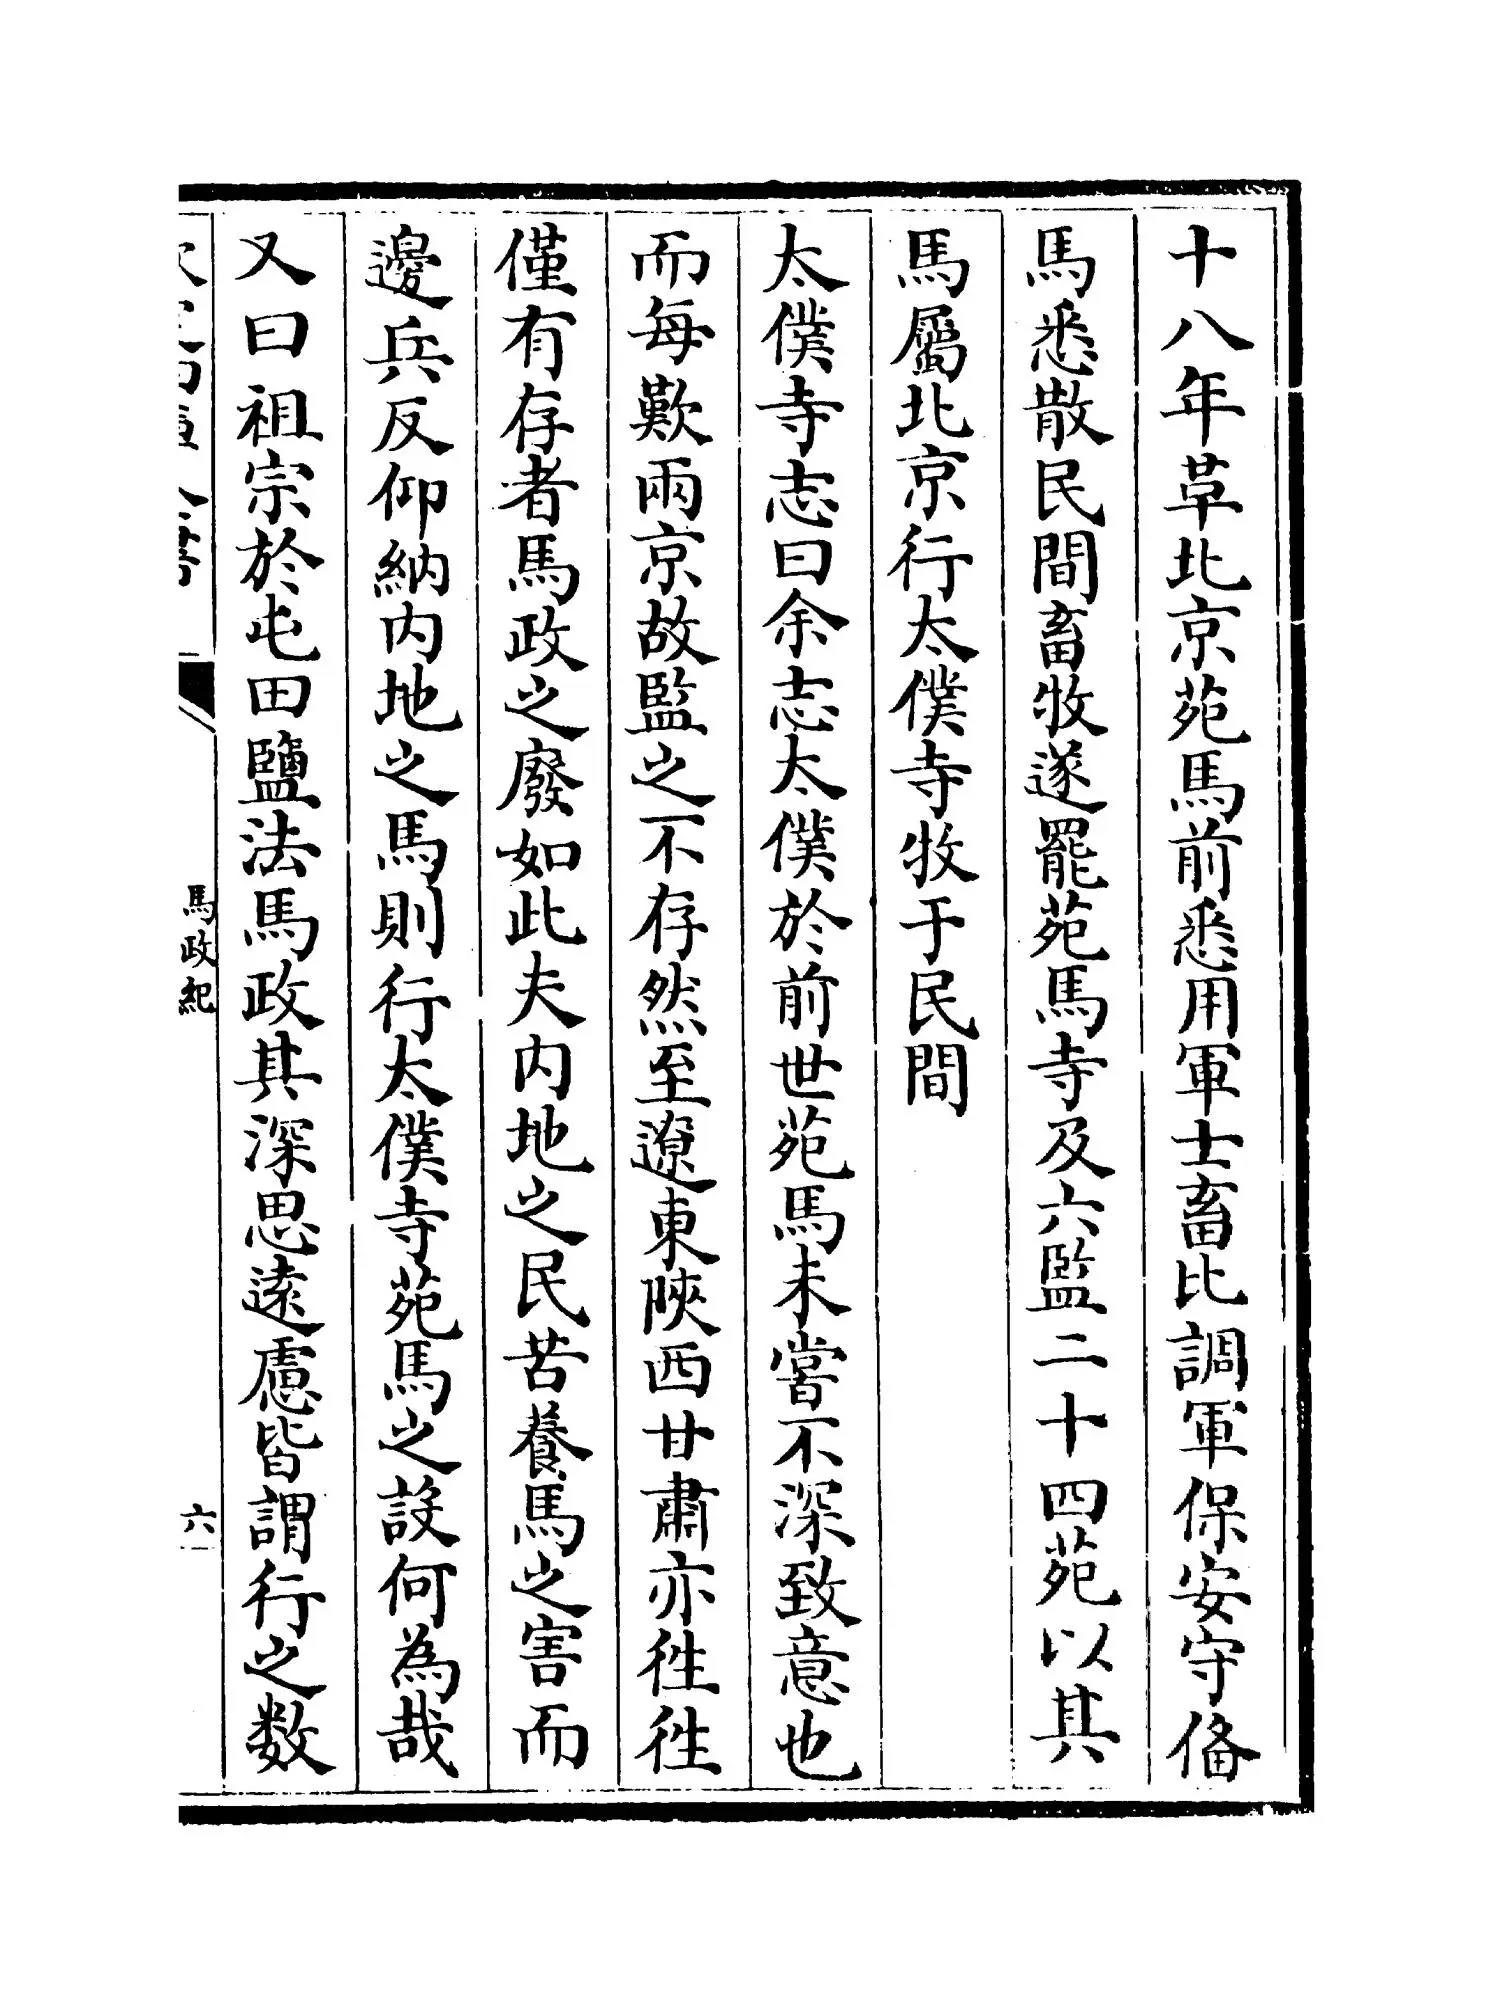 十八年革北京苑馬前悉用軍士畜比調軍保安守俻
馬悉散民間畜牧遂罷苑馬寺及六監二十四苑以其
馬屬北京行太僕寺牧于民間
太僕寺志曰余志太僕於前世苑馬未嘗不深致意也
而每歎兩京故監之不存然至遼東陜西甘肅亦徃徃
僅有存者馬政之廢如此夫内地之民苦養馬之害而
邊兵反仰納内地之馬則行太僕寺苑馬之設何為哉
又曰祖宗於屯田鹽法馬政其深思遠慮皆謂行之数
馬政紀
六